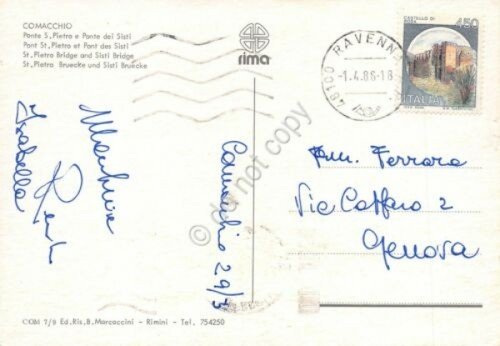 COMACCHIO
Ponte S. Pietro e Ponte dei Sisti
Pont St. Pietro et Pont des Sisti
St. Pietro Bridge and Sisti Bridge
St. Pietro Bruecke und Sisti Bruecke
rima
CASTELLO DI
450
48100 RAVENNA
-1.4.86-18
ITALIA
Isabella
Comacchio 29/3
Fam. Ferrara
Via Caffaro 2
Genova
do not copy
COM 7/9 Ed. Ris. B. Marcaccini - Rimini - Tel. 754250